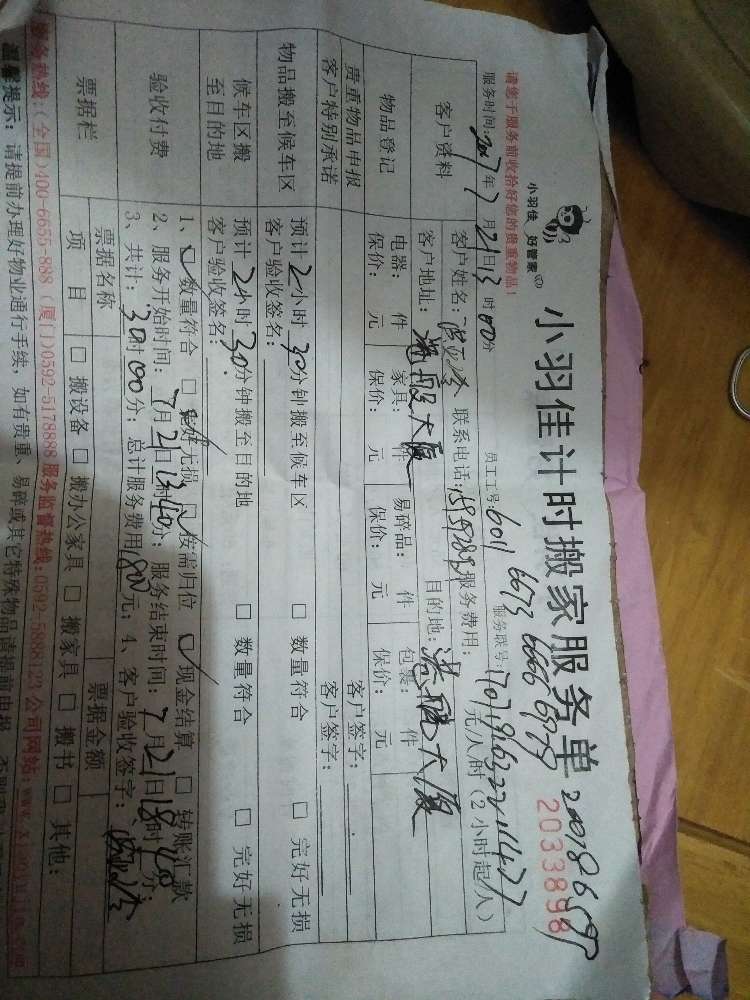 小羽佳 好管家
小羽佳计时搬家服务单
2033898
请您于服务前收拾好您的贵重物品！
员工工号：6011 6673 6666 6979
服务时间：2017年7月21日13时00分
服务联号：
客户资料
客户姓名： 联系电话： 服务费用： 元/人/时（2小时起/人）
客户地址：港股大厦 目的地：港股大厦
物品登记
电器： 件 家具： 件 易碎品： 件 包装： 件
保价： 元 保价： 元 保价： 元 保价： 元
贵重物品申报 客户签字：
客户特别承诺 客户签字：
物品搬至候车区
预计2小时30分钟搬至候车区 □ 数量符合 □ 完好无损
客户验收签名：
候车区搬至目的地
预计2小时30分钟搬至目的地 □ 数量符合 □ 完好无损
客户验收签名：
验收付费
1、□ 数量符合 □ 完好无损 □ 按需归位 □ 现金结算 □ 转账汇款
2、服务开始时间：7月21日13时40分；服务结束时间：7月21日18时40分；
3、共计：30时00分；总计服务费用1800元；4、客户验收签字：
票据栏
票据名称 票据金额
项目 □ 搬设备 □ 搬办公家具 □ 搬家具 □ 搬书 □ 其他：
服务热线：(全国)400-6655-888 (厦门)0592-5178888 服务监督热线：0592-5888123 公司网站：www.xiaoyujia.com
温馨提示：请提前办理好物业通行手续，如有贵重、易碎或其它特殊物品请提前申报，否则